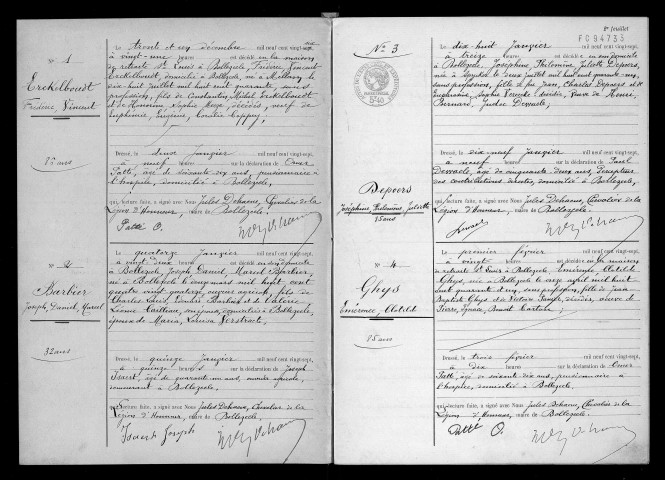 N° 1
Erckelboudt
Frédéric, Vincent
86 ans
Le trente et un décembre mil neuf cent vingt-six
à vingt-une heures est décédé en la maison
de retraite St Louis à Bollezeele, Frédéric Vincent
Erckelboudt, domicilié à Bollezeele, né à
six juillet mil huit cent quarante, sans
profession, fils de Constantin, Michel Erckelboudt
et de Honorine Sophie décédés, veuf de
Euphémie, Eugénie,
Dressé, le deux janvier mil neuf cent vingt-sept,
à neuf heures sur la déclaration de Omer
Patté, âgé de soixante dix ans, pensionnaire à
l'hospice, domicilié à Bollezeele
qui, lecture faite, a signé avec Nous Jules Dehaene, Chevalier de la
Légion d'Honneur, maire de Bollezeele.
Patté O.
N° 2
Barbier
Joseph, Daniel, Marcel
32 ans
Le quatorze janvier mil neuf cent vingt-sept,
à vingt deux heures est décédé en son domicile
à Bollezeele, Joseph Daniel Marcel Barbier,
né à Bollezeele le onze mars mil huit cent
quatre vingt quatorze, ouvrier agricole, fils de
Charles Louis, Barbier et de Valérie
Léonie domiciliés à Bollezeele,
époux de Maria, Louisa Verstraete.
Dressé, le quinze janvier mil neuf cent vingt-sept,
à quinze heures sur la déclaration de Joseph
Isaert, âgé de quarante un ans, ouvrier agricole,
demeurant à Bollezeele
qui, lecture faite, a signé avec Nous Jules Dehaene, Chevalier de la
Légion d'Honneur, maire de Bollezeele
Isaert Joseph
1er feuillet
FC94733
N° 3
Depoers
Joséphine, Philomène, Juliette
85 ans
Le dix-huit janvier mil neuf cent vingt-sept,
à treize heures est décédée en son domicile
à Bollezeele, Joséphine Philomène Juliette Depoers,
née à le deux juillet mil huit cent quarante un,
sans profession, fille de feu Jean, Charles Depoers et de
Sophie décédée, veuve de Henri,
Bernard, Dewaele.
Dressé, le dix-neuf janvier mil neuf cent vingt-sept,
à neuf heures sur la déclaration de Paul
Dewaele, âgé de cinquante deux ans, Percepteur
des contributions directes, domicilié à Bollezeele,
qui, lecture faite, a signé avec Nous Jules Dehaene, Chevalier de la
Légion d'Honneur, maire de Bollezeele
N° 4
Ghys
Emérence, Clotilde
85 ans
Le premier février mil neuf cent vingt-sept,
à vingt heures est décédée en la maison
de retraite St Louis à Bollezeele Emérence, Clotilde
Ghys, née à Bollezeele le onze avril mil huit cent
quarante et un, sans profession, fille de Jean
Baptiste Ghys et de Victoire décédés, veuve de
Pierre, Ignace, Benoit
Dressé, le trois février mil neuf cent vingt-sept,
à dix heures sur la déclaration de Omer
Patté, âgé de soixante dix ans, pensionnaire à
l'hospice, domicilié à Bollezeele
qui, lecture faite, a signé avec Nous Jules Dehaene, Chevalier de la
Légion d'Honneur, maire de Bollezeele.
Patté O.